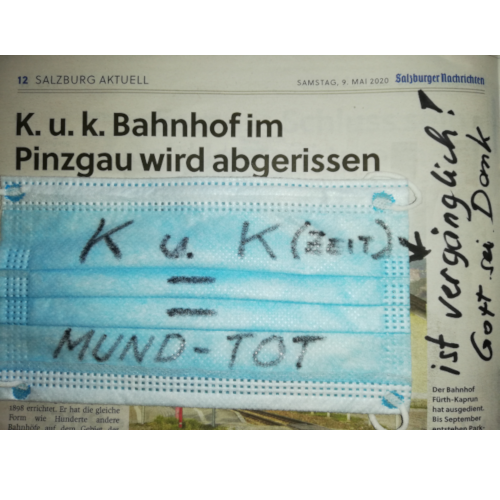 12 SALZBURG AKTUELL
SAMSTAG, 9. MAI 2020 Salzburger Nachrichten
K. u. k. Bahnhof im
Pinzgau wird abgerissen
K u. K (ZEIT)
=
=
MUND-TOT
ist vergänglich!
Gott sei Dank
1898 errichtet. Er hat die gleiche
Form wie Hunderte andere
Bahnhöfe auf dem Gebiet der
Der Bahnhof
Fürth-Kaprun
hat ausgedient.
Bis September
entstehen Park-